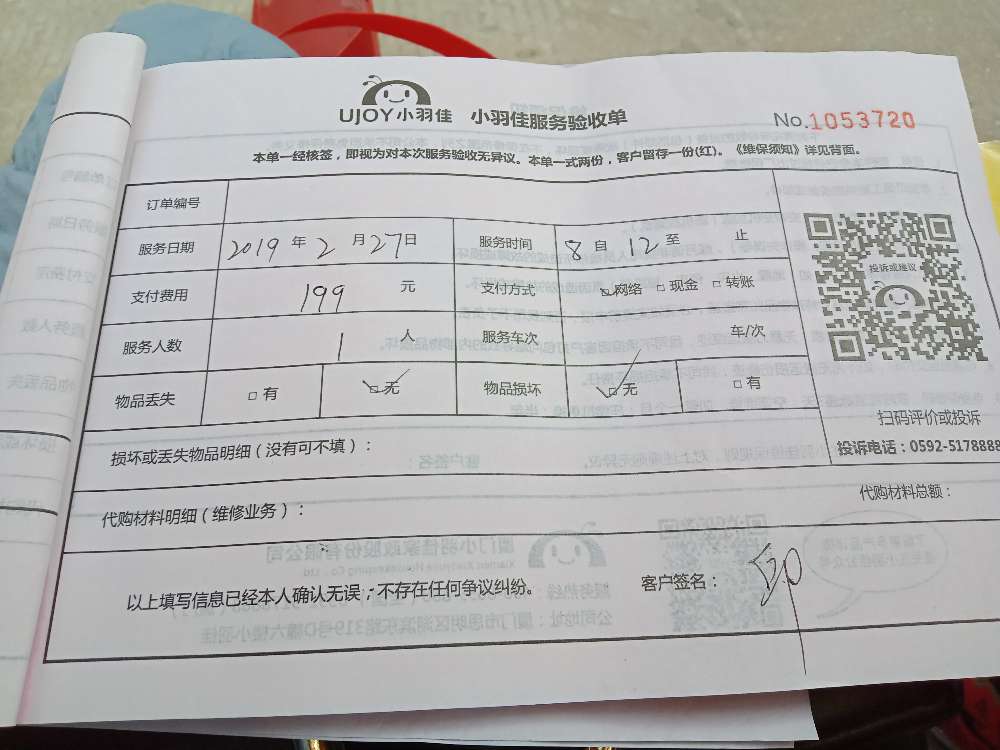 UJOY小羽佳 小羽佳服务验收单 No.1053720
本单一经核签，即视为对本次服务验收无异议。本单一式两份，客户留存一份(红)。《维保须知》详见背面。
订单编号
服务日期 2019 年 2 月 27 日 服务时间 8 自 12 至 止
支付费用 199 元 支付方式 ☑网络 □现金 □转账
服务人数 1 人 服务车次 车/次
物品丢失 □有 ☑无 物品损坏 ☑无 □有
投诉或建议
扫码评价或投诉
投诉电话：0592-5178888
损坏或丢失物品明细（没有可不填）：
代购材料明细（维修业务）： 代购材料总额：
以上填写信息已经本人确认无误，不存在任何争议纠纷。 客户签名：